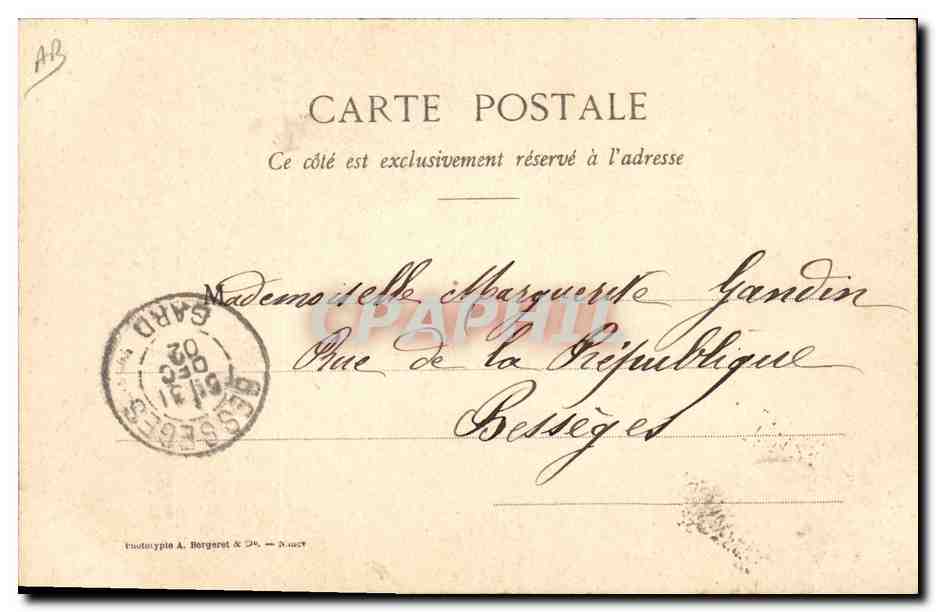 AB
CARTE POSTALE
Ce côté est exclusivement réservé à l'adresse
Mademoiselle Marguerite Gandin
CPAPHIL
Rue de la République
Bessèges
BESSEGES GARD
31
DEC
02
Phototypie A. Bergeret & Cie. — Nancy